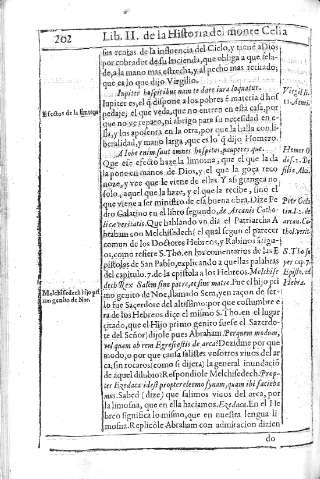 202
Lib. II. de la Historia del monte Celia
sin rentas de la influencia del Cielo, y tiene a Dios
por cobrador de su hacienda, que obliga a que sele
de, a la mano mas estrecha, y al pecho mas recatado;
que es lo que dixo Virgilio.
Iupiter hospitibus nam te dare iura loquntur.
Iupiter es, el q̃ dispone a los pobres materia d hos
pedaje; el que veda, que no entren en esta casa, por
que no ve reparo, ni abrigo para su necesidad en e-
lla, y los aposenta en la otra, por que la halla con li-
beralidad, y mano larga, que es lo q̃ dijo Homero.
A Iobe enim sunt omnes hospites, pauperes que.
Que ese efecto haze la limosna, que el que la da
la pone en manos de Dios, y el que la goça reco
noze, y vee que le viene de ellas. Y asi grangea no
solo, aquel que la haze, y el que la recibe, sino el
que viene a ser ministro de esa buena obra. Dize Pe
dro Galatino en el libro segundo, de Arcanis Catho-
licæ veritatis. Que hablando vn dia el Patriarcha A
braham con Melchisedech (el qual segun el parecer
comun de los Doctores Hebreos, y Rabinos antiguos,
como refiere S. Tho. en los comentarios de las E
pistolas de San Pablo, explicando aquellas palabras
del capitulo. 7. de la epistola a los Hebreos. Melchise
dech Rex Salem sine patre, et sine matre. Fue el hijo pri
mo genito de Noe, llamado Sem, y en razon de ser-
lo fue Sacerdote del altisimo: por que costumbre e
ra de los Hebreos dice el mismo S. Tho. en el lugar
citado, que el Hijo primo genito fuese el Sacerdo-
te del Señor) dijole pues Abraham. Perquem modum,
vel quam ob rem Egressi estis de arca? Dezidme por que
modo, o por que causa salistes vosotros vivos del ar
ca, sin tocaros (como si dijera) la general inundaciõ
de aquel dilubio? Respondiole Melchisedech. Prop-
ter Ezedaca id est propter elemosynam, quam ibi facieba
mus. Sabed (dize) que salimos vivos del arca, por
la limosna, que en ella haciamos. Ezedaca. En el He
breo significa lo mismo, que en nuestra lengua li
mosna. Replicole Abraham con admiracion dizien
do
Efectos de la
Melchisedech Hijo pri
mo genito de Noe.
Virgil.
Homer.
Petr Gala
S. Tho.
Hebra.